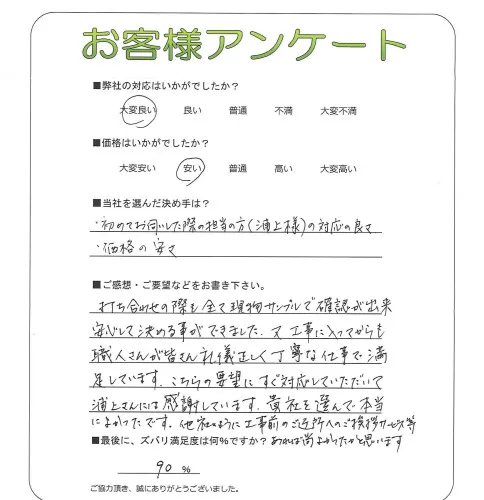 お客様アンケート
■弊社の対応はいかがでしたか？
大変良い 良い 普通 不満 大変不満
■価格はいかがでしたか？
大変安い 安い 普通 高い 大変高い
■当社を選んだ決め手は？
・初めてお伺いした際の担当の方（浦上様）の対応の良さ
・価格の安さ
■ご感想・ご要望などをお書き下さい。
打ち合わせの際も全て現物サンプルで確認が出来
安心して決める事ができました。又 工事に入ってからも
職人さんが皆さん礼儀正しく丁寧な仕事で満
足しています。こちらの要望にすぐ対応していただいて
浦上さんには感謝しています。貴社を選んで本当
によかったです。他社のように工事前のご近所へのご挨拶サービス等
■最後に、ズバリ満足度は何％ですか？ あれば尚よかったかと思います
90 %
ご協力頂き、誠にありがとうございました。